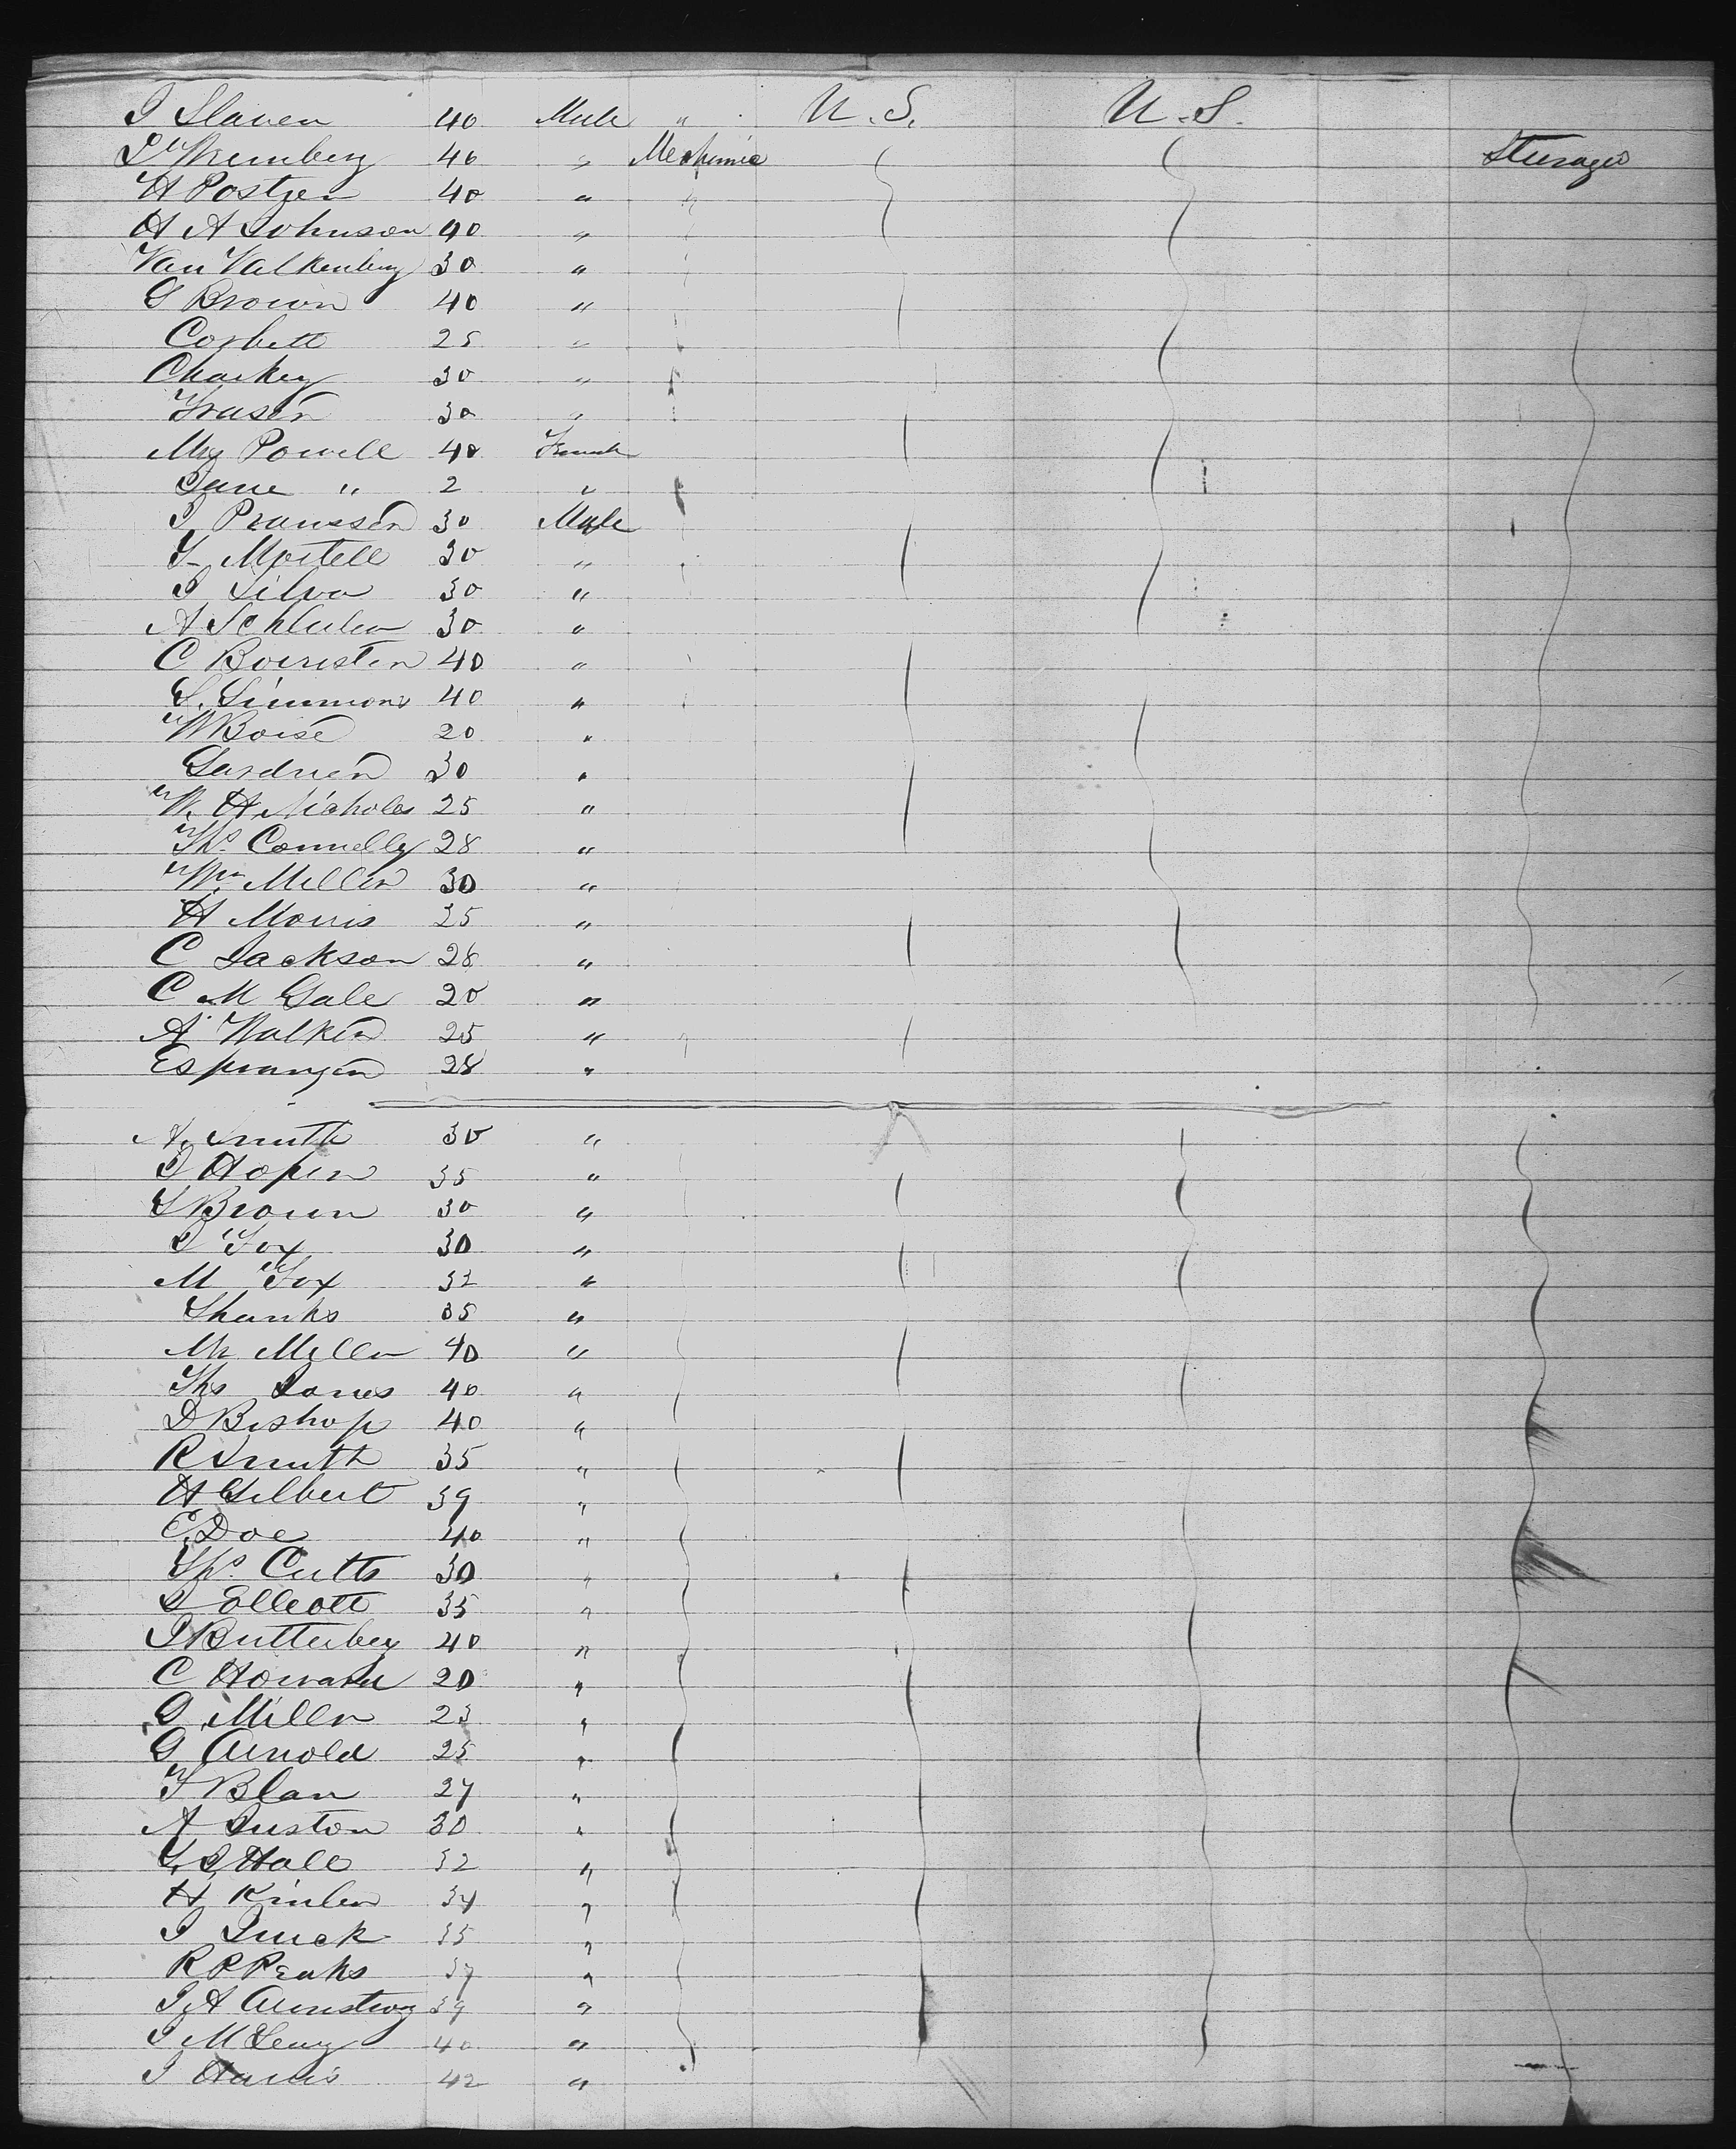 J Slaven 40 Male " U.S. U.S.
40 " Mechanic Steerage
H Postzer 40 "
H A Johnson 40 "
Van Valkenberg 30 "
G Brown 40 "
Corbett 25 "
Charkey 30 "
Fraser 30 "
Mrs Powell 40 Female
Jane " 2 "
J 30 Male
30 "
J Silva 30 "
A 30 "
C 40 "
S. Simmons 40 "
W Boise 20 "
Gardner 30 "
W. H. Nicholes 25 "
Ths. Connelly 28 "
Wm Miller 30 "
H Morris 25 "
C Jackson 28 "
C M Gale 20 "
A Walker 25 "
28 "
A. Smith 30 "
J Hoper 35 "
S Brown 30 "
J Fox 30 "
M Fox 32 "
Shanks 35 "
Mr Miller 40 "
Ths Jones 40 "
D Bishop 40 "
R Smith 35 "
H Gilbert 39 "
E. Doe 40 "
Ths. Cutts 30 "
J Ellcott 35 "
J Butterbey 40 "
C Howard 20 "
G. Miller 23 "
G Arnold 25 "
F Blan 27 "
A Juston 30 "
Hall 32 "
H 34 "
J 35 "
R P Peaks 37 "
J A Armstrong 39 "
J M 40 "
J Harris 42 "